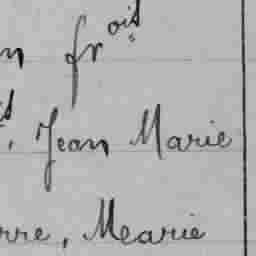 n frois
, Jean Marie
rre, Mearie